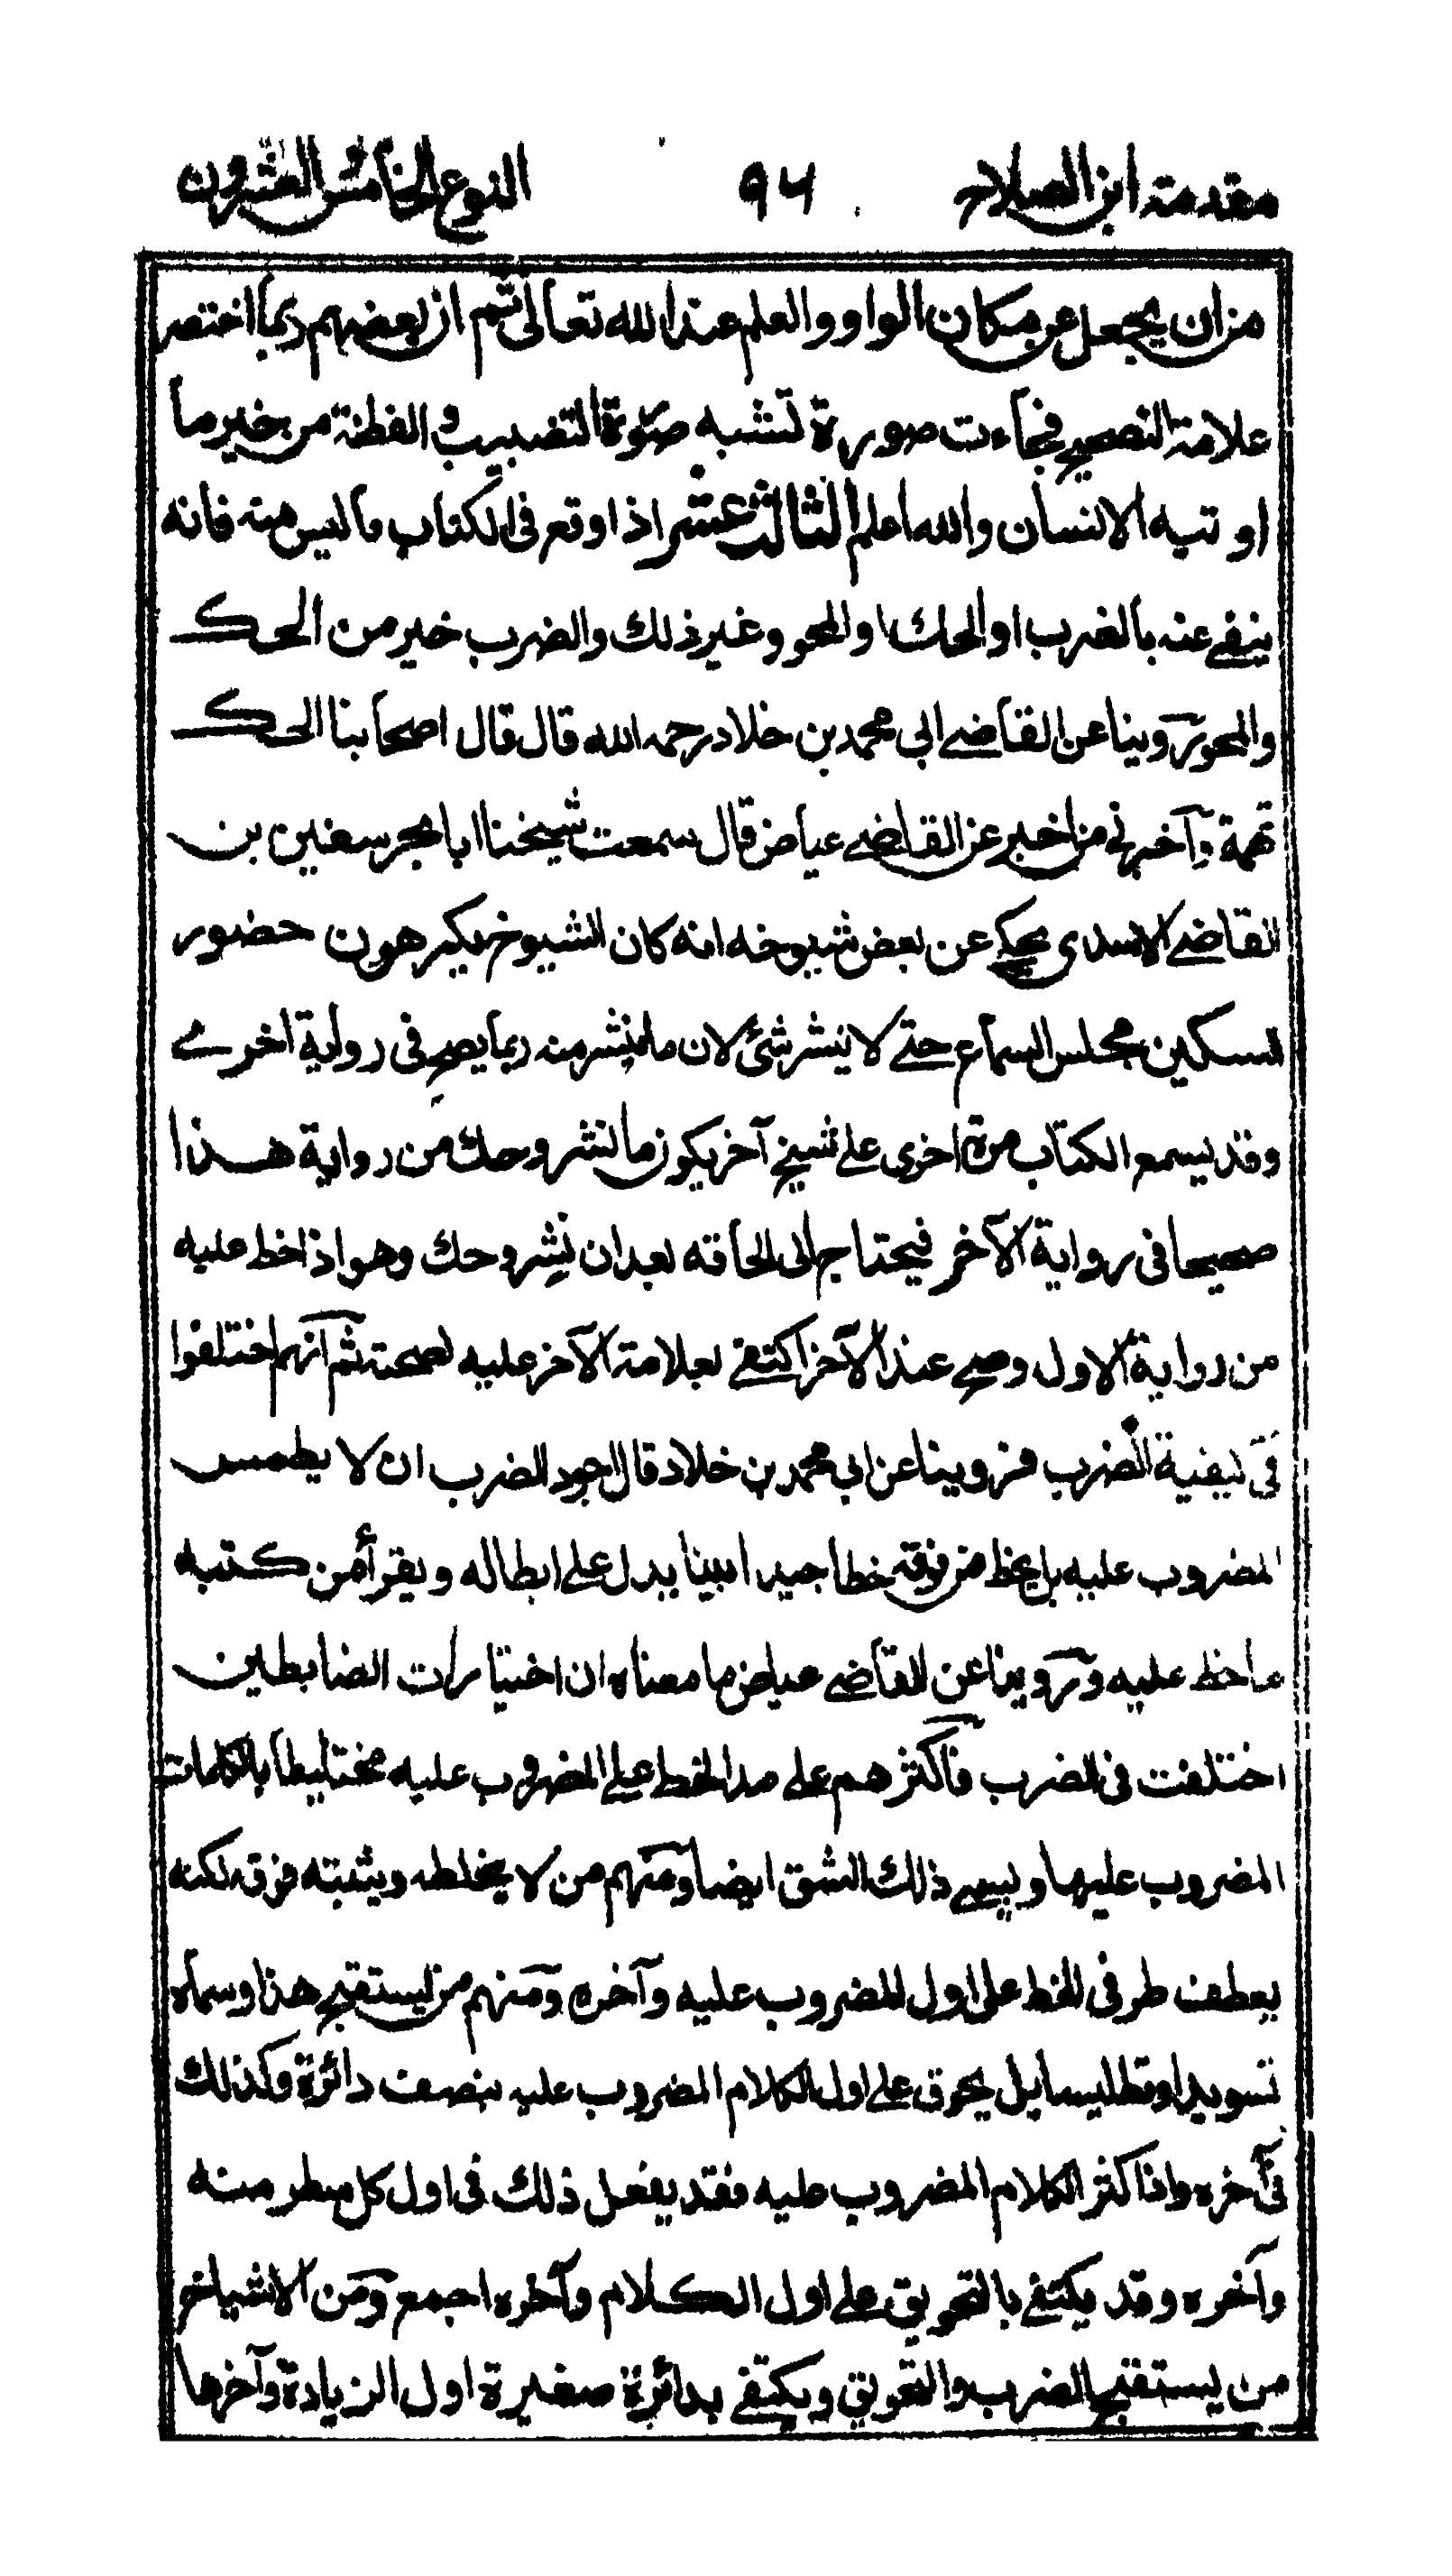 مقدمة ابن الصلاح ٩٦ النوع الخامس العشرون
من ان يجعل عن مكان الواو والعلم عند الله تعالى ثم ان بعضهم ربما اختصر
علامة التصحيح فجاءت صورة تشبه صورة التضبيب والفطنة من خير ما
اوتيه الانسان والله اعلم الثالث عشر اذا وقع فى الكتاب ما ليس منه فانه
ينفى عنه بالضرب او الحك او المحو وغير ذلك والضرب خير من الحك
والمحو روينا عن القاضى ابى محمد بن خلاد رحمه الله قال قال اصحابنا الحك
تهمة وآخبرنى من اخبر عن القاضى عياض قال سمعت شيخنا ابا بحر سفين بن
القاضى الاسدى يحكى عن بعض شيوخه انه كان الشيوخ يكرهون حضور
السكين مجلس السماع حتى لا يبشر شئ لان ما يبشر منه ربما يصح فى رواية اخرى
وقد يسمع الكتاب مرة اخرى على شيخ آخر يكون ما بشر وحك من رواية هذا
صحيحا فى رواية الآخر فيحتاج الى الحاقه بعد ان بشر وحك وهو اذا خط عليه
من رواية الاول وصح عند الآخر اكتفى بعلامة الآخر عليه لصحته ثم انهم اختلفوا
فى كيفية الضرب فروينا عن ابى محمد بن خلاد قال اجود الضرب ان لا يطمس
المضروب عليه بل يخط من فوقه خطا جيدا بينا يدل على ابطاله ويقرأ من كتبه
ما خط عليه وروينا عن القاضى عياض ما معناه ان اختيارات الضابطين
اختلفت فى الضرب فاكثرهم على مد الخط على المضروب عليه مختلطا بالكلمات
المضروب عليها ويسمى ذلك الشق ايضا ومنهم من لا يخلطه ويثبته فوقه لكنه
يعطف طرفى الخط على اول المضروب عليه وآخره ومنهم من يستقبح هذا وسماه
تسويدا وتطليسا بل يحوق على اول الكلام المضروب عليه بنصف دائرة وكذلك
فى آخره واذا كثر الكلام المضروب عليه فقد يفعل ذلك فى اول كل سطر منه
وآخره وقد يكتفى بالتحويق على اول الكلام وآخره اجمع ومن الاشياخ
من يستقبح الضرب والتحويق ويكتفى بدائرة صغيرة اول الزيادة وآخرها